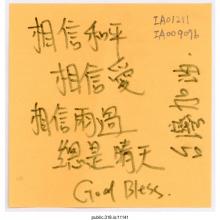 IA01211
IA009096
相信和平
相信愛
相信雨過
總是晴天
God Bless.
加油
public.318.io/11141